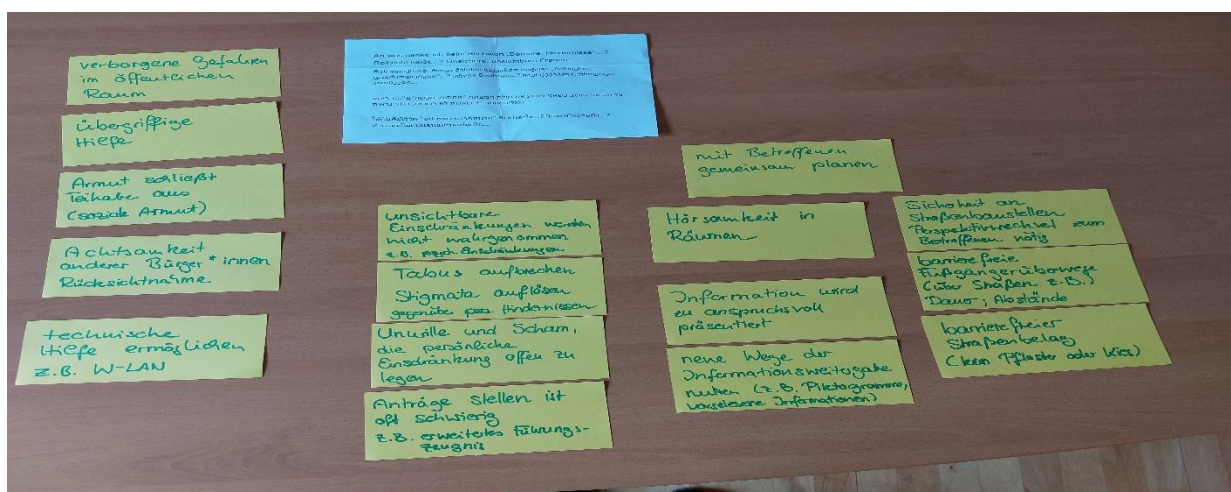 verborgene Gefahren
im öffentlichen
Raum
übergriffige
Hilfe
Armut schließt
Teilhabe aus
(soziale Armut)
Achtsamkeit
anderer Bürger*innen
Rücksichtnahme
technische
Hilfe ermöglichen
z.B. W-LAN
An was denke ich beim Stichwort
unsichtbare
Einschränkungen werden
nicht wahrgenommen
z.B. psych. Einschränkungen
Tabus aufbrechen
Stigmata auflösen
gegenüber pers. Hindernissen
Unwille und Scham,
die persönliche
Einschränkung offen zu
legen
Anträge stellen ist
oft schwierig
z.B. erweitertes Führungs-
zeugnis
mit Betroffenen
gemeinsam planen
Hörsamkeit in
Räumen
Information wird
zu anspruchsvoll
präsentiert
neue Wege der
Informationsweitergabe
nutzen (z.B. Piktogramme,
vorgelesene Informationen)
Sicherheit an
Straßenbaustellen
Perspektivwechsel zum
Betroffenen nötig
barrierefreie
Fußgängerüberwege
(über Straßen z.B.)
Dauer; Abstände
barrierefreier
Straßenbelag
(kein Pflaster oder Kies)